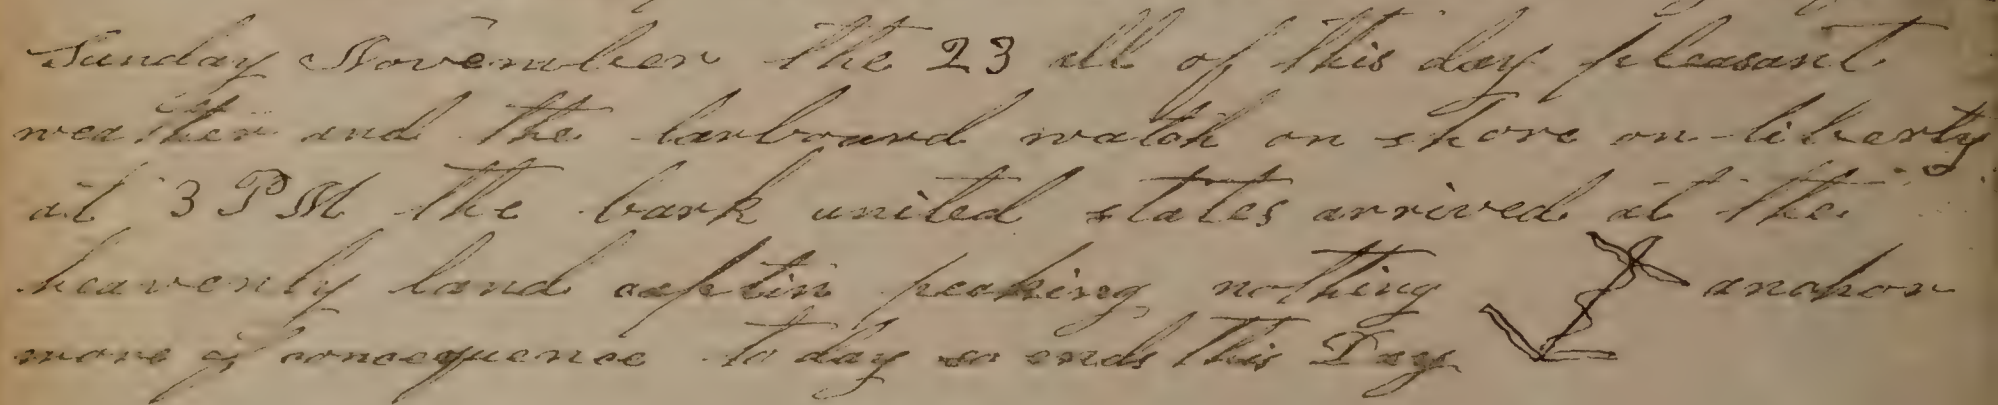 Sunday November the 23 all of this day pleasant
weather and the larboard watch on shore on liberty
at 3 PM the bark united states arrived at the
heavenly land captin peaking nothing anchor
more of concequence to day so ends this Day